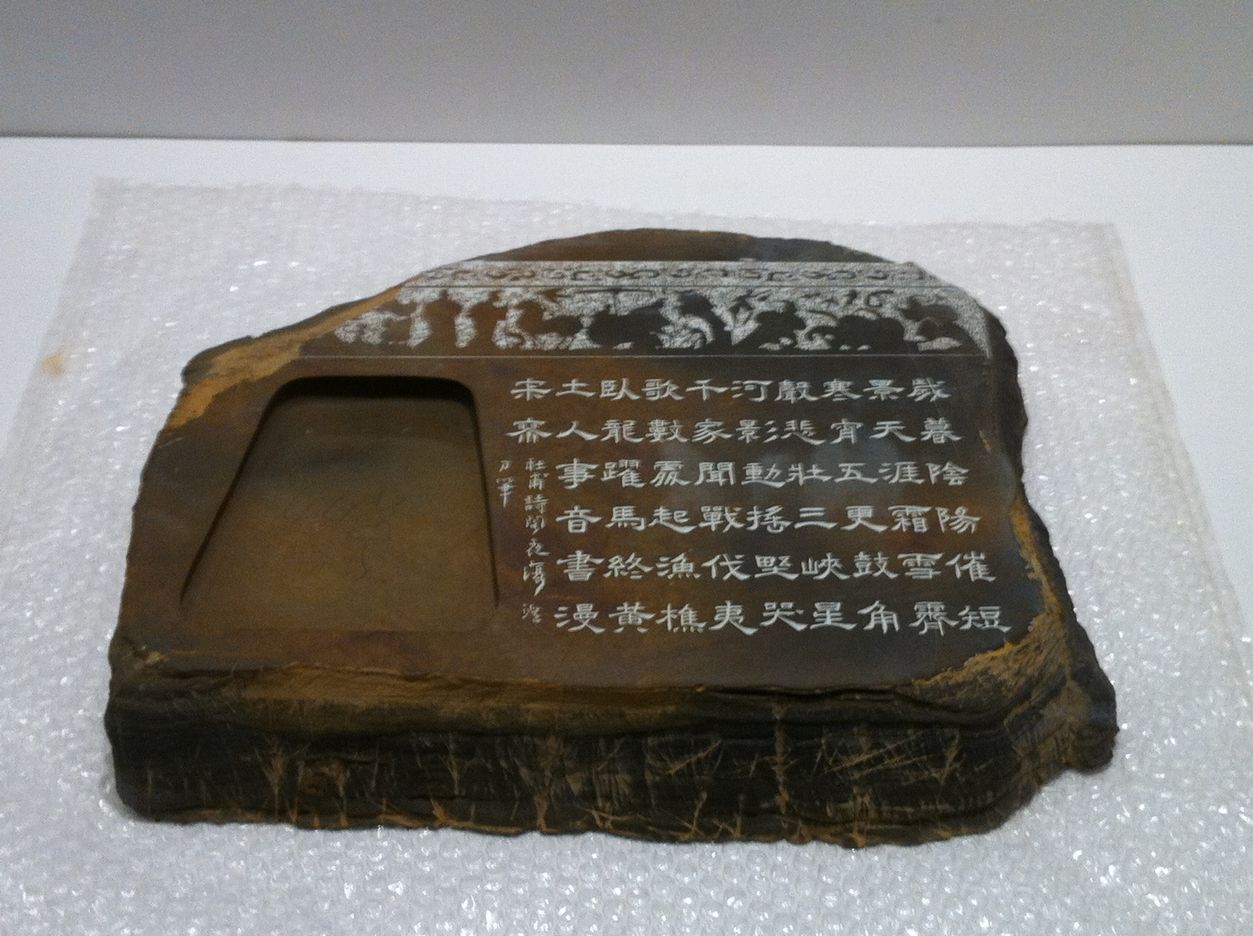 歲暮陰陽催短
景天涯霜雪霽
寒宵五更鼓角
聲悲壯三峽星
河影動搖野哭
千家聞戰伐夷
歌數處起漁樵
臥龍躍馬終黃
土人事音書漫
寂寥
杜甫詩閣夜
刀筆